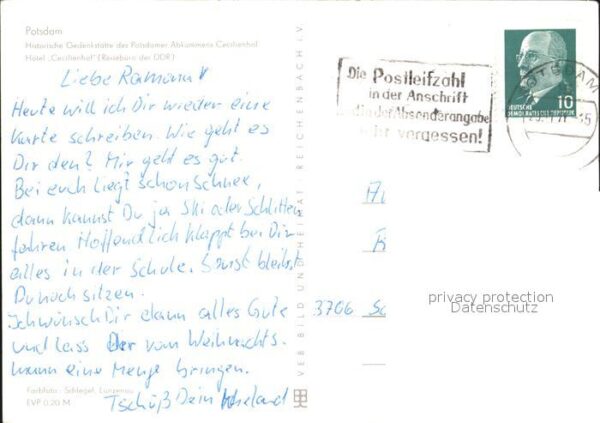 Potsdam
Historische Gedenkstätte des Potsdamer Abkommens Cecilienhof
Hotel „Cecilienhof" (Reisebüro der DDR)
Liebe
Heute will ich Dir wieder eine
Karte schreiben. Wie geht es
Dir den? Mir geht es gut.
Bei euch liegt schon Schnee,
dann kannst Du ja Ski oder Schlitten
fahren Hoffendlich klappt bei Dir
alles in der Schule. Sonst bleibst
Du noch sitzen.
Ich wünsch Dir dann alles Gute
und lass Der vom Weihnachts.
mann eine Menge bringen.
Tschüß Dein
Farbfoto: Schlegel, Lunzenau
EVP 0,20 M
VEB BILD UND HEIMAT REICHENBACH I. V.
Die Postleitzahl
in der Anschrift
in der Absenderangabe
vergessen!
POTSDAM
10
DEUTSCHE
DEMOKRATISCHE REPUBLIK
3706
privacy protection
Datenschutz